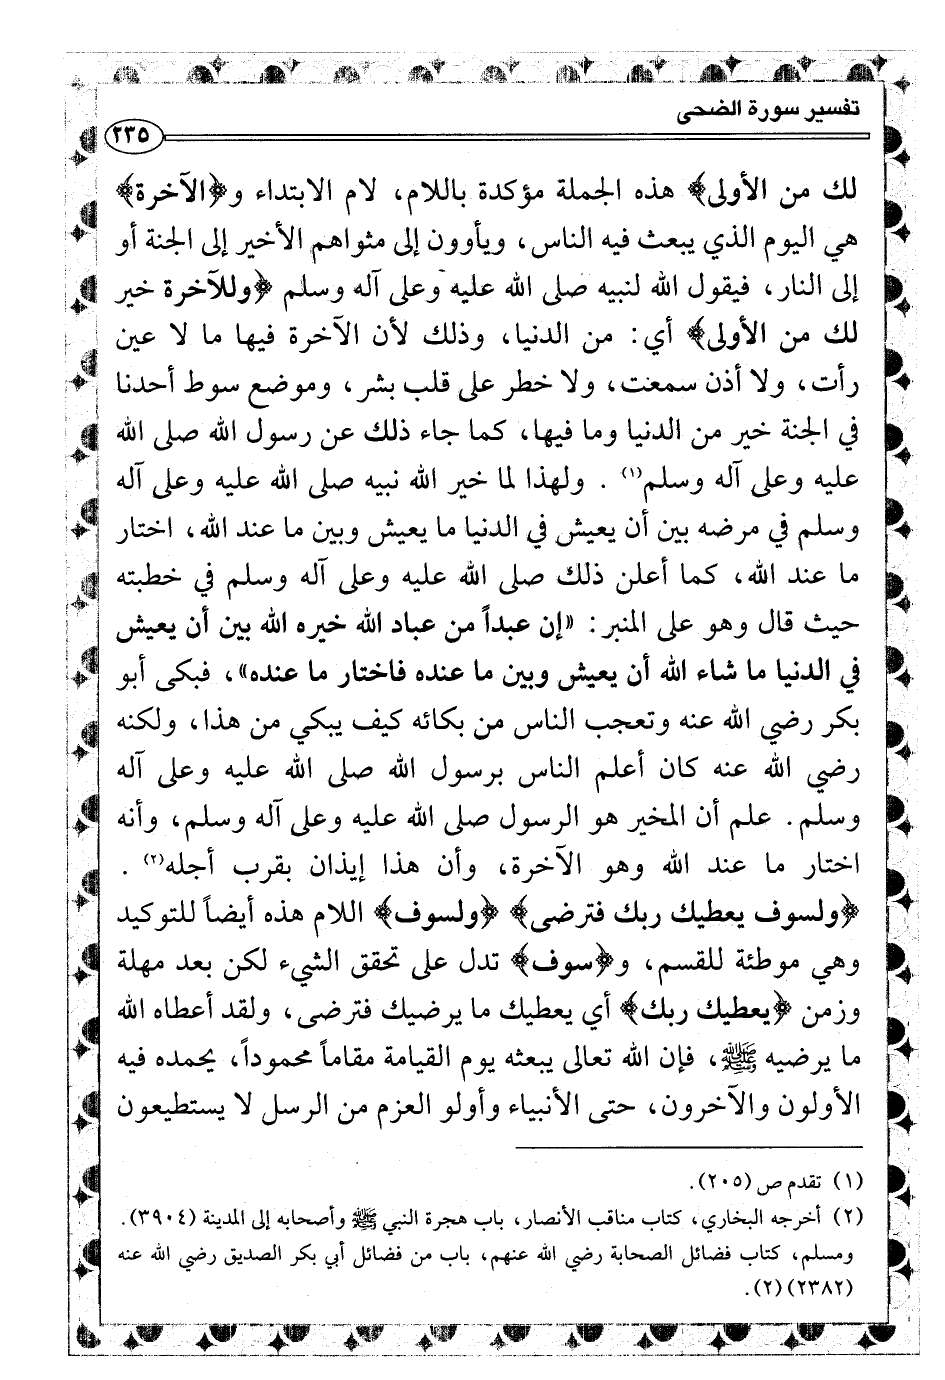 تفسير سورة الضحى
٢٣٥
لك من الأولى﴾ هذه الجملة مؤكدة باللام، لام الابتداء و﴿الآخرة﴾
هي اليوم الذي يبعث فيه الناس، ويأوون إلى مثواهم الأخير إلى الجنة أو
إلى النار، فيقول الله لنبيه صلى الله عليه وعلى آله وسلم ﴿وللآخرة خير
لك من الأولى﴾ أي: من الدنيا، وذلك لأن الآخرة فيها ما لا عين
رأت، ولا أذن سمعت، ولا خطر على قلب بشر، وموضع سوط أحدنا
في الجنة خير من الدنيا وما فيها، كما جاء ذلك عن رسول الله صلى الله
عليه وعلى آله وسلم(١) . ولهذا لما خير الله نبيه صلى الله عليه وعلى آله
وسلم في مرضه بين أن يعيش في الدنيا ما يعيش وبين ما عند الله، اختار
ما عند الله، كما أعلن ذلك صلى الله عليه وعلى آله وسلم في خطبته
حيث قال وهو على المنبر: «إن عبداً من عباد الله خيره الله بين أن يعيش
في الدنيا ما شاء الله أن يعيش وبين ما عنده فاختار ما عنده»، فبكى أبو
بكر رضي الله عنه وتعجب الناس من بكائه كيف يبكي من هذا، ولكنه
رضي الله عنه كان أعلم الناس برسول الله صلى الله عليه وعلى آله
وسلم. علم أن المخير هو الرسول صلى الله عليه وعلى آله وسلم، وأنه
اختار ما عند الله وهو الآخرة، وأن هذا إيذان بقرب أجله(٢) .
﴿ولسوف يعطيك ربك فترضى﴾ ﴿ولسوف﴾ اللام هذه أيضاً للتوكيد
وهي موطئة للقسم، و﴿سوف﴾ تدل على تحقق الشيء لكن بعد مهلة
وزمن ﴿يعطيك ربك﴾ أي يعطيك ما يرضيك فترضى، ولقد أعطاه الله
ما يرضيه ﷺ، فإن الله تعالى يبعثه يوم القيامة مقاماً محموداً، يحمده فيه
الأولون والآخرون، حتى الأنبياء وأولو العزم من الرسل لا يستطيعون
(١) تقدم ص (٢٠٥).
(٢) أخرجه البخاري، كتاب مناقب الأنصار، باب هجرة النبي ﷺ وأصحابه إلى المدينة (٣٩٠٤).
ومسلم، كتاب فضائل الصحابة رضي الله عنهم، باب من فضائل أبي بكر الصديق رضي الله عنه
(٢٣٨٢) (٢).